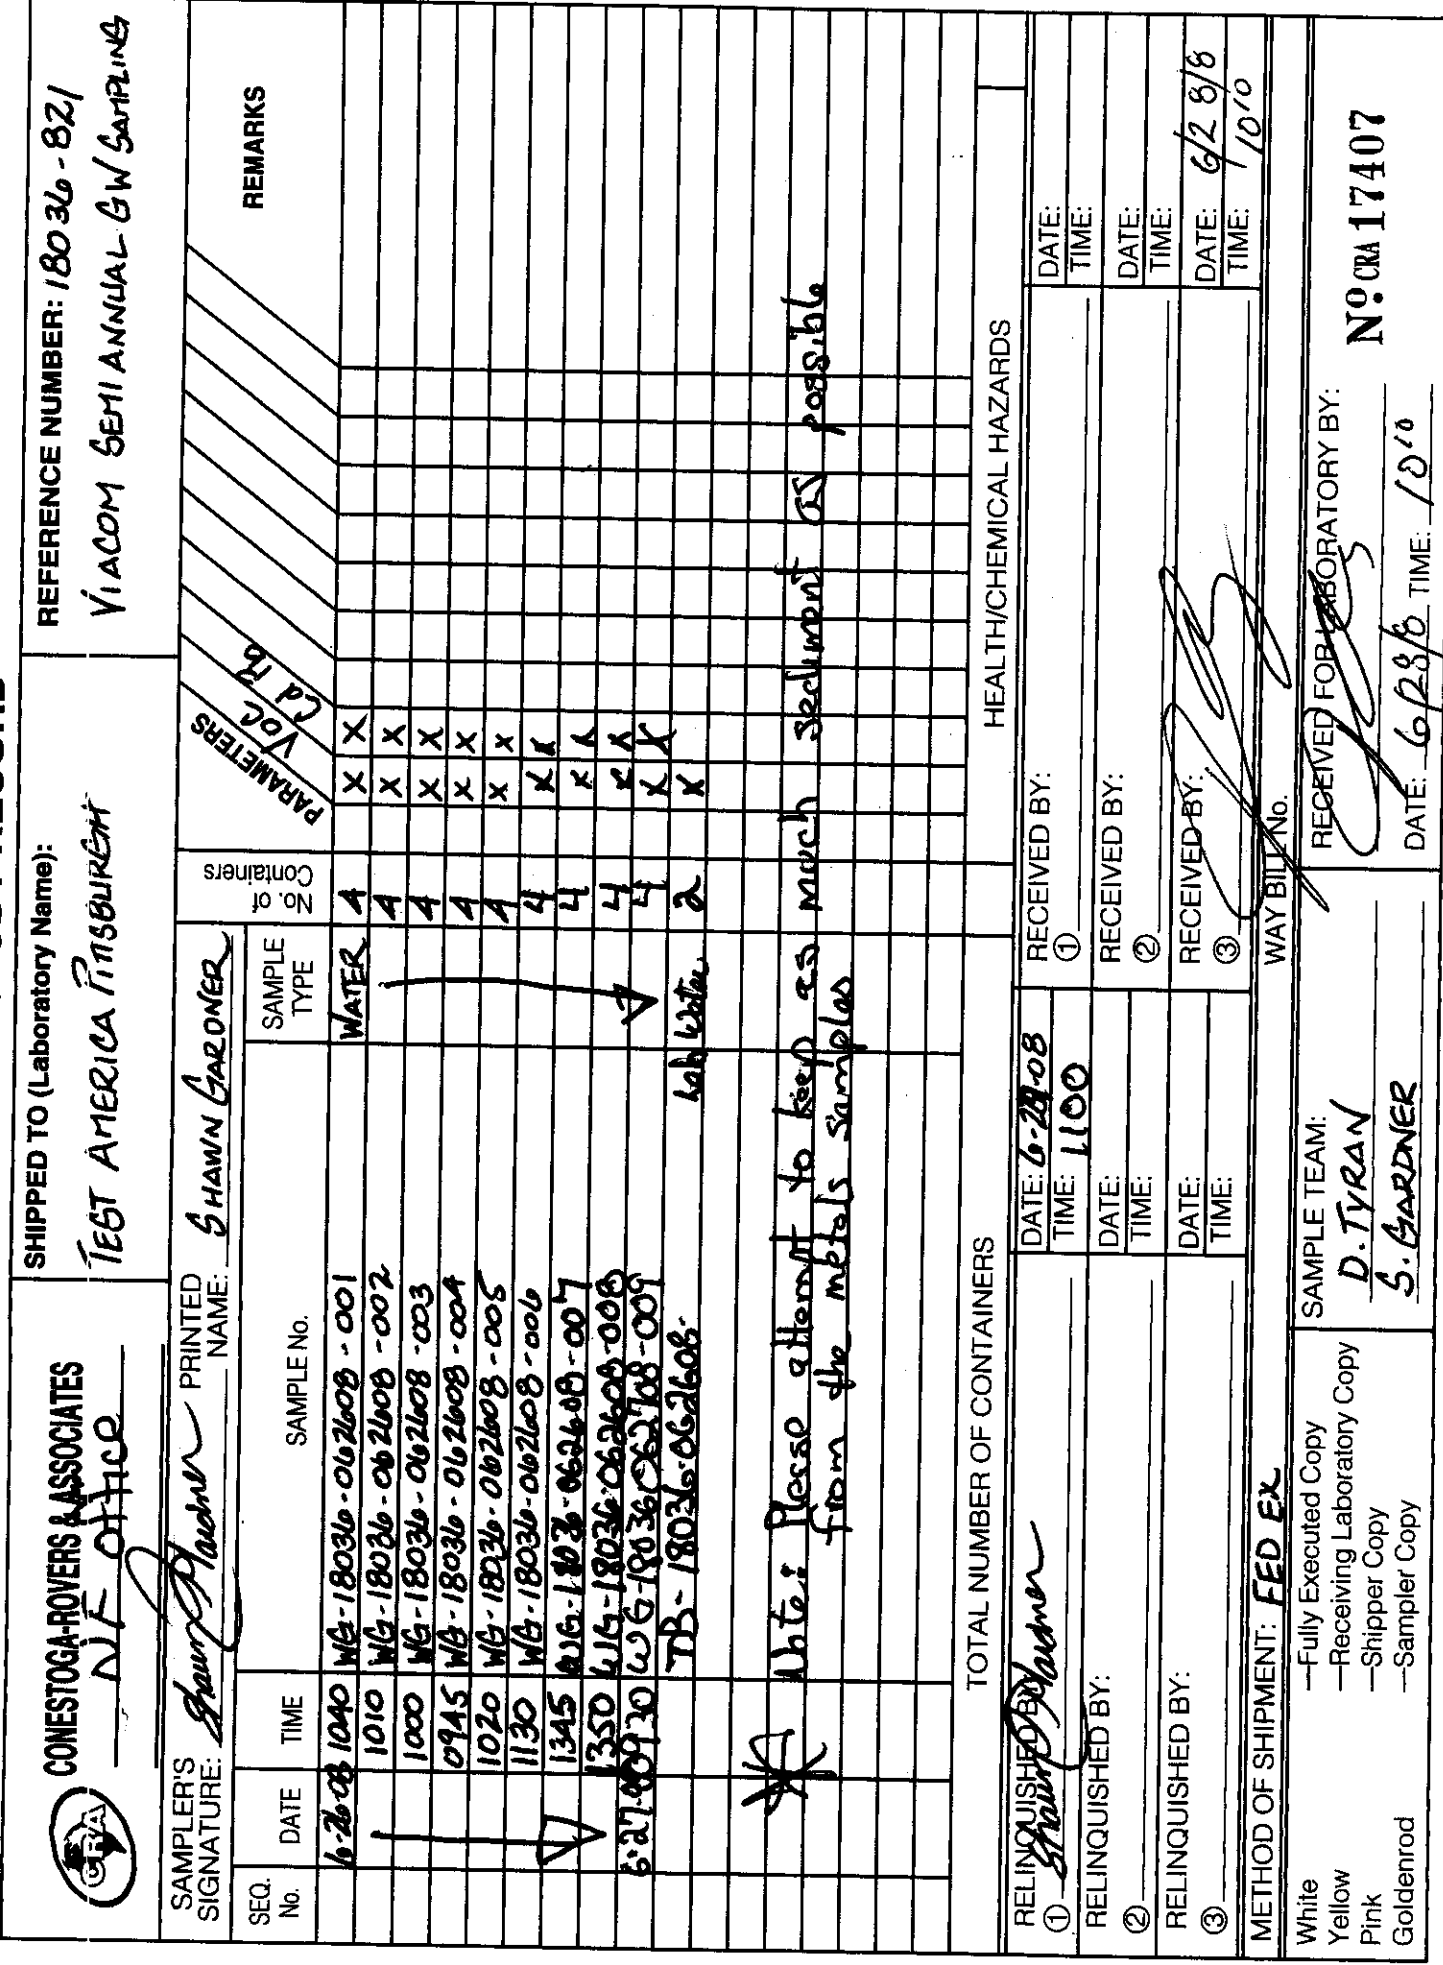 CRA
CONESTOGA-ROVERS & ASSOCIATES
NF office
SHIPPED TO (Laboratory Name):
TEST AMERICA PITTSBURGH
REFERENCE NUMBER: 18036-821
VIACOM SEMI ANNUAL GW SAMPLING
SAMPLER'S SIGNATURE: Shawn Gardner PRINTED NAME: SHAWN GARDNER
PARAMETERS VOC Cd Pb
REMARKS
SEQ. No. DATE TIME SAMPLE No. SAMPLE TYPE No. of Containers
6-26-08 1040 WG-18036-062608-001 WATER 4 X X
1010 WG-18036-062608-002 4 X X
1000 WG-18036-062608-003 4 X X
0945 WG-18036-062608-004 4 X X
1020 WG-18036-062608-005 4 X X
1130 WG-18036-062608-006 4 X X
1345 WG-18036-062608-007 4 X X
1350 WG-18036-062608-008 4 X X
6-27-08 0930 WG-18036-062708-009 4 X X
TB-18036-062608- Lab Water 2 X
Note: Please attempt to keep as much sediment as possible
from the metals samples
TOTAL NUMBER OF CONTAINERS
HEALTH/CHEMICAL HAZARDS
RELINQUISHED BY: DATE: TIME: 1100 RECEIVED BY: DATE: TIME:
① Shawn Gardner ①
RELINQUISHED BY: DATE: TIME: RECEIVED BY: DATE: TIME:
② ②
RELINQUISHED BY: DATE: TIME: RECEIVED BY: DATE: 6/28/8 TIME: 1010
③ ③
METHOD OF SHIPMENT: FED EX
WAY BILL No.
White —Fully Executed Copy
Yellow —Receiving Laboratory Copy
Pink —Shipper Copy
Goldenrod —Sampler Copy
SAMPLE TEAM:
D. TYRAN
S. GARDNER
RECEIVED FOR LABORATORY BY:
DATE: 6/28/8 TIME: 1010
Nº CRA 17407